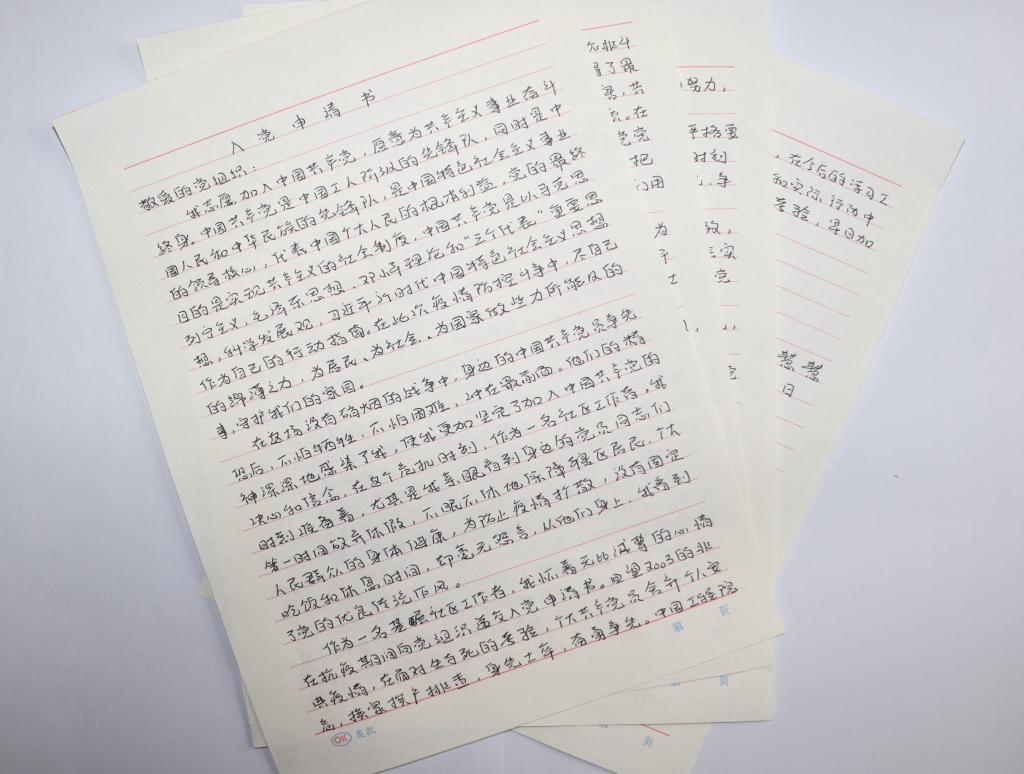 入党申请书
敬爱的党组织：
我志愿加入中国共产党，愿意为共产主义事业奋斗
终身。中国共产党是中国工人阶级的先锋队，同时是中
国人民和中华民族的先锋队，是中国特色社会主义事业
的领导核心，代表中国广大人民的根本利益，党的最终
目的是实现共产主义的社会制度，中国共产党是以马克思
列宁主义、毛泽东思想、邓小平理论和"三个代表"重要思
想，科学发展观，习近平新时代中国特色社会主义思想
作为自己的行动指南。在此次疫情防控斗争中，尽自己
的绵薄之力，为居民、为社会、为国家做些力所能及的
事，守护我们的家园。
在这场没有硝烟的战争中，身边的中国共产党员争先
恐后，不怕牺牲，不怕困难，冲在最前面。他们的精
神深深地感染了我，使我更加坚定了加入中国共产党的
决心和信念，在这个危机时刻，作为一名社区工作者，我
时刻准备着，尤其是我亲眼看到身边的党员同志们
第一时间放弃休假，不眠不休地保障辖区居民、广大
人民群众的身体健康，为防止疫情扩散，没有固定
吃饭和休息时间，却毫无怨言，从他们身上，我看到
了党的优良传统作风。
作为一名基层社区工作者，我怀着无比诚挚的心情
在抗疫期间向党组织递交入党申请书。回望2003的非
典疫情，在面对生与死的考验，广大共产党员会新个人安
危，挨家挨户排查，身先士卒，奋勇争先。中国工程院
OK 奥凯
第 页
允非斗
了最
在
党
把
们用
为
于
士
努力，
严格要
时刻
争
致，
实
党
，在今后的学习工
和实际行动中
考验，早日加
慧慧
日
页
第 页